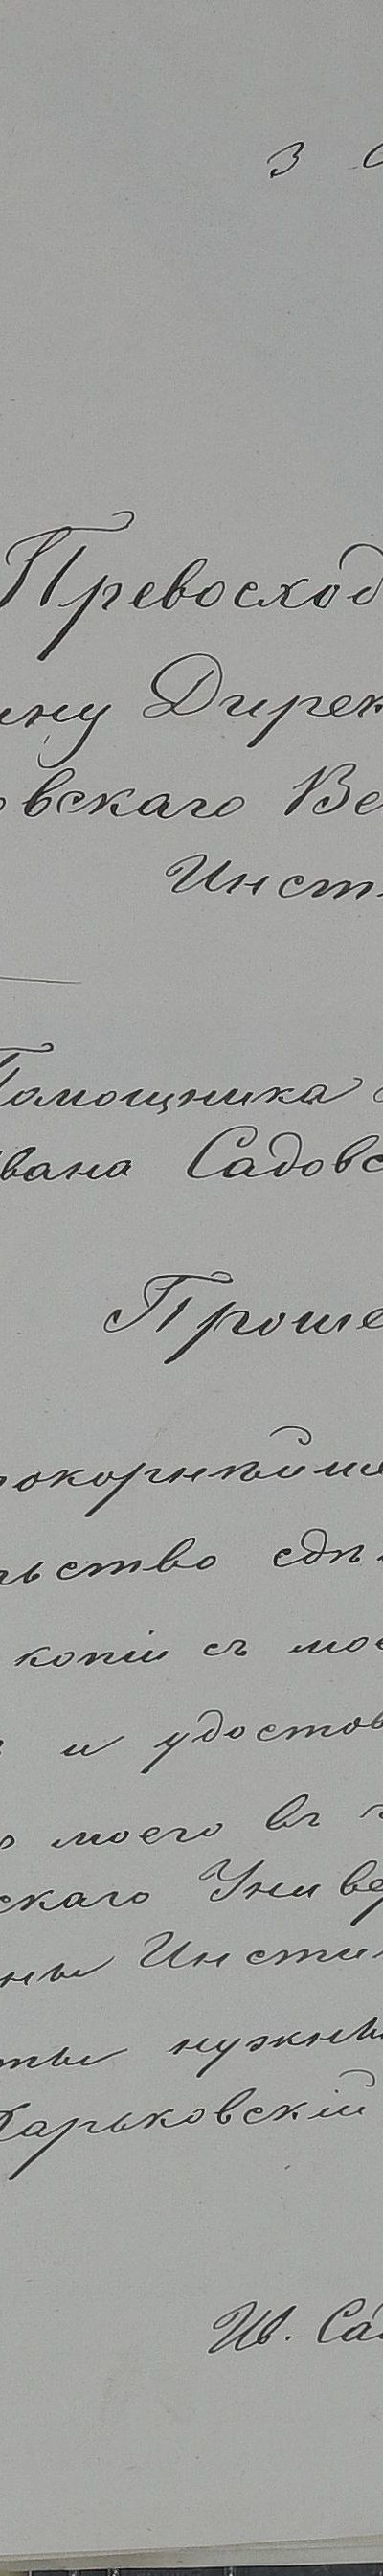 3 С
Превосход
ину Дирек
овскаго Ве
Инсти
Помощника
вана Садовс
Проше
покорнѣйше
льство сдѣ
копіи съ мое
и удостов
моего въ
скаго Униве
ны Инсти
ты нужны
Харьковскій
Ив. Са